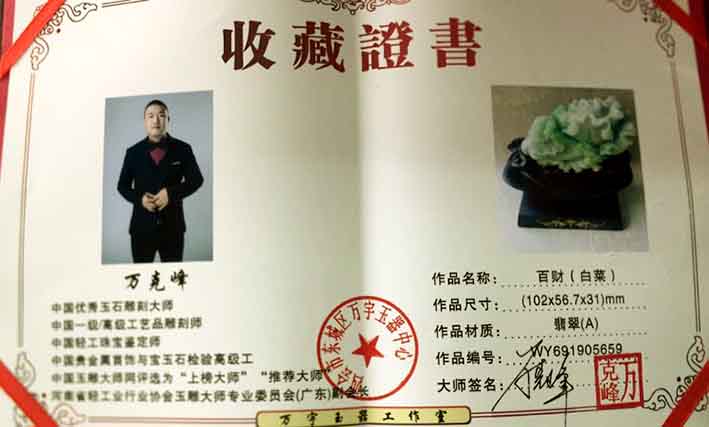 收藏證書
万克峰
中国优秀玉石雕刻大师
中国一级/高级工艺品雕刻师
中国轻工珠宝鉴定师
中国贵金属首饰与宝玉石检验高级工
中国玉雕大师网评选为“上榜大师” “推荐大师”
河南省轻工业行业协会玉雕大师专业委员会(广东)副会长
作品名称: 百财（白菜）
作品尺寸: (102x56.7x31)mm
作品材质: 翡翠(A)
作品编号: WY691905659
大师签名:
万克峰
四会市东城区万宇玉器中心
万宇玉器工作室